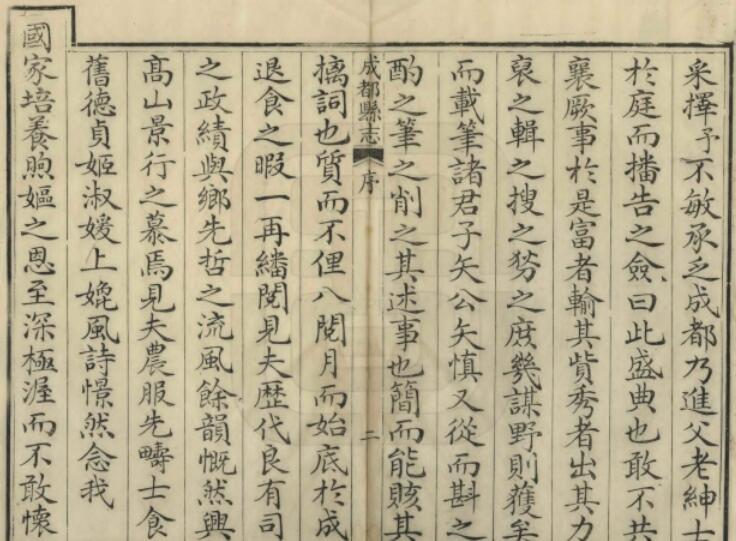 采擇予不敏承乏成都乃進父老紳士
於庭而播告之僉曰此盛典也敢不共
襄厥事於是富者輸其貲秀者出其力
裒之輯之搜之
之庶幾謀野則獲矣
而載筆諸君子矢公矢慎又從而斟之
酌之筆之削之其述事也簡而能賅其
成都縣志
序
二
摛詞也質而不俚八閱月而始底於成
退食之暇一再繙閱見夫歷代良有司
之政績與鄉先哲之流風餘韻慨然興
高山景行之慕焉見夫農服先疇士食
舊德貞姬淑媛上媲風詩憬然念我
國家培養煦嫗之恩至深極渥而不敢懷